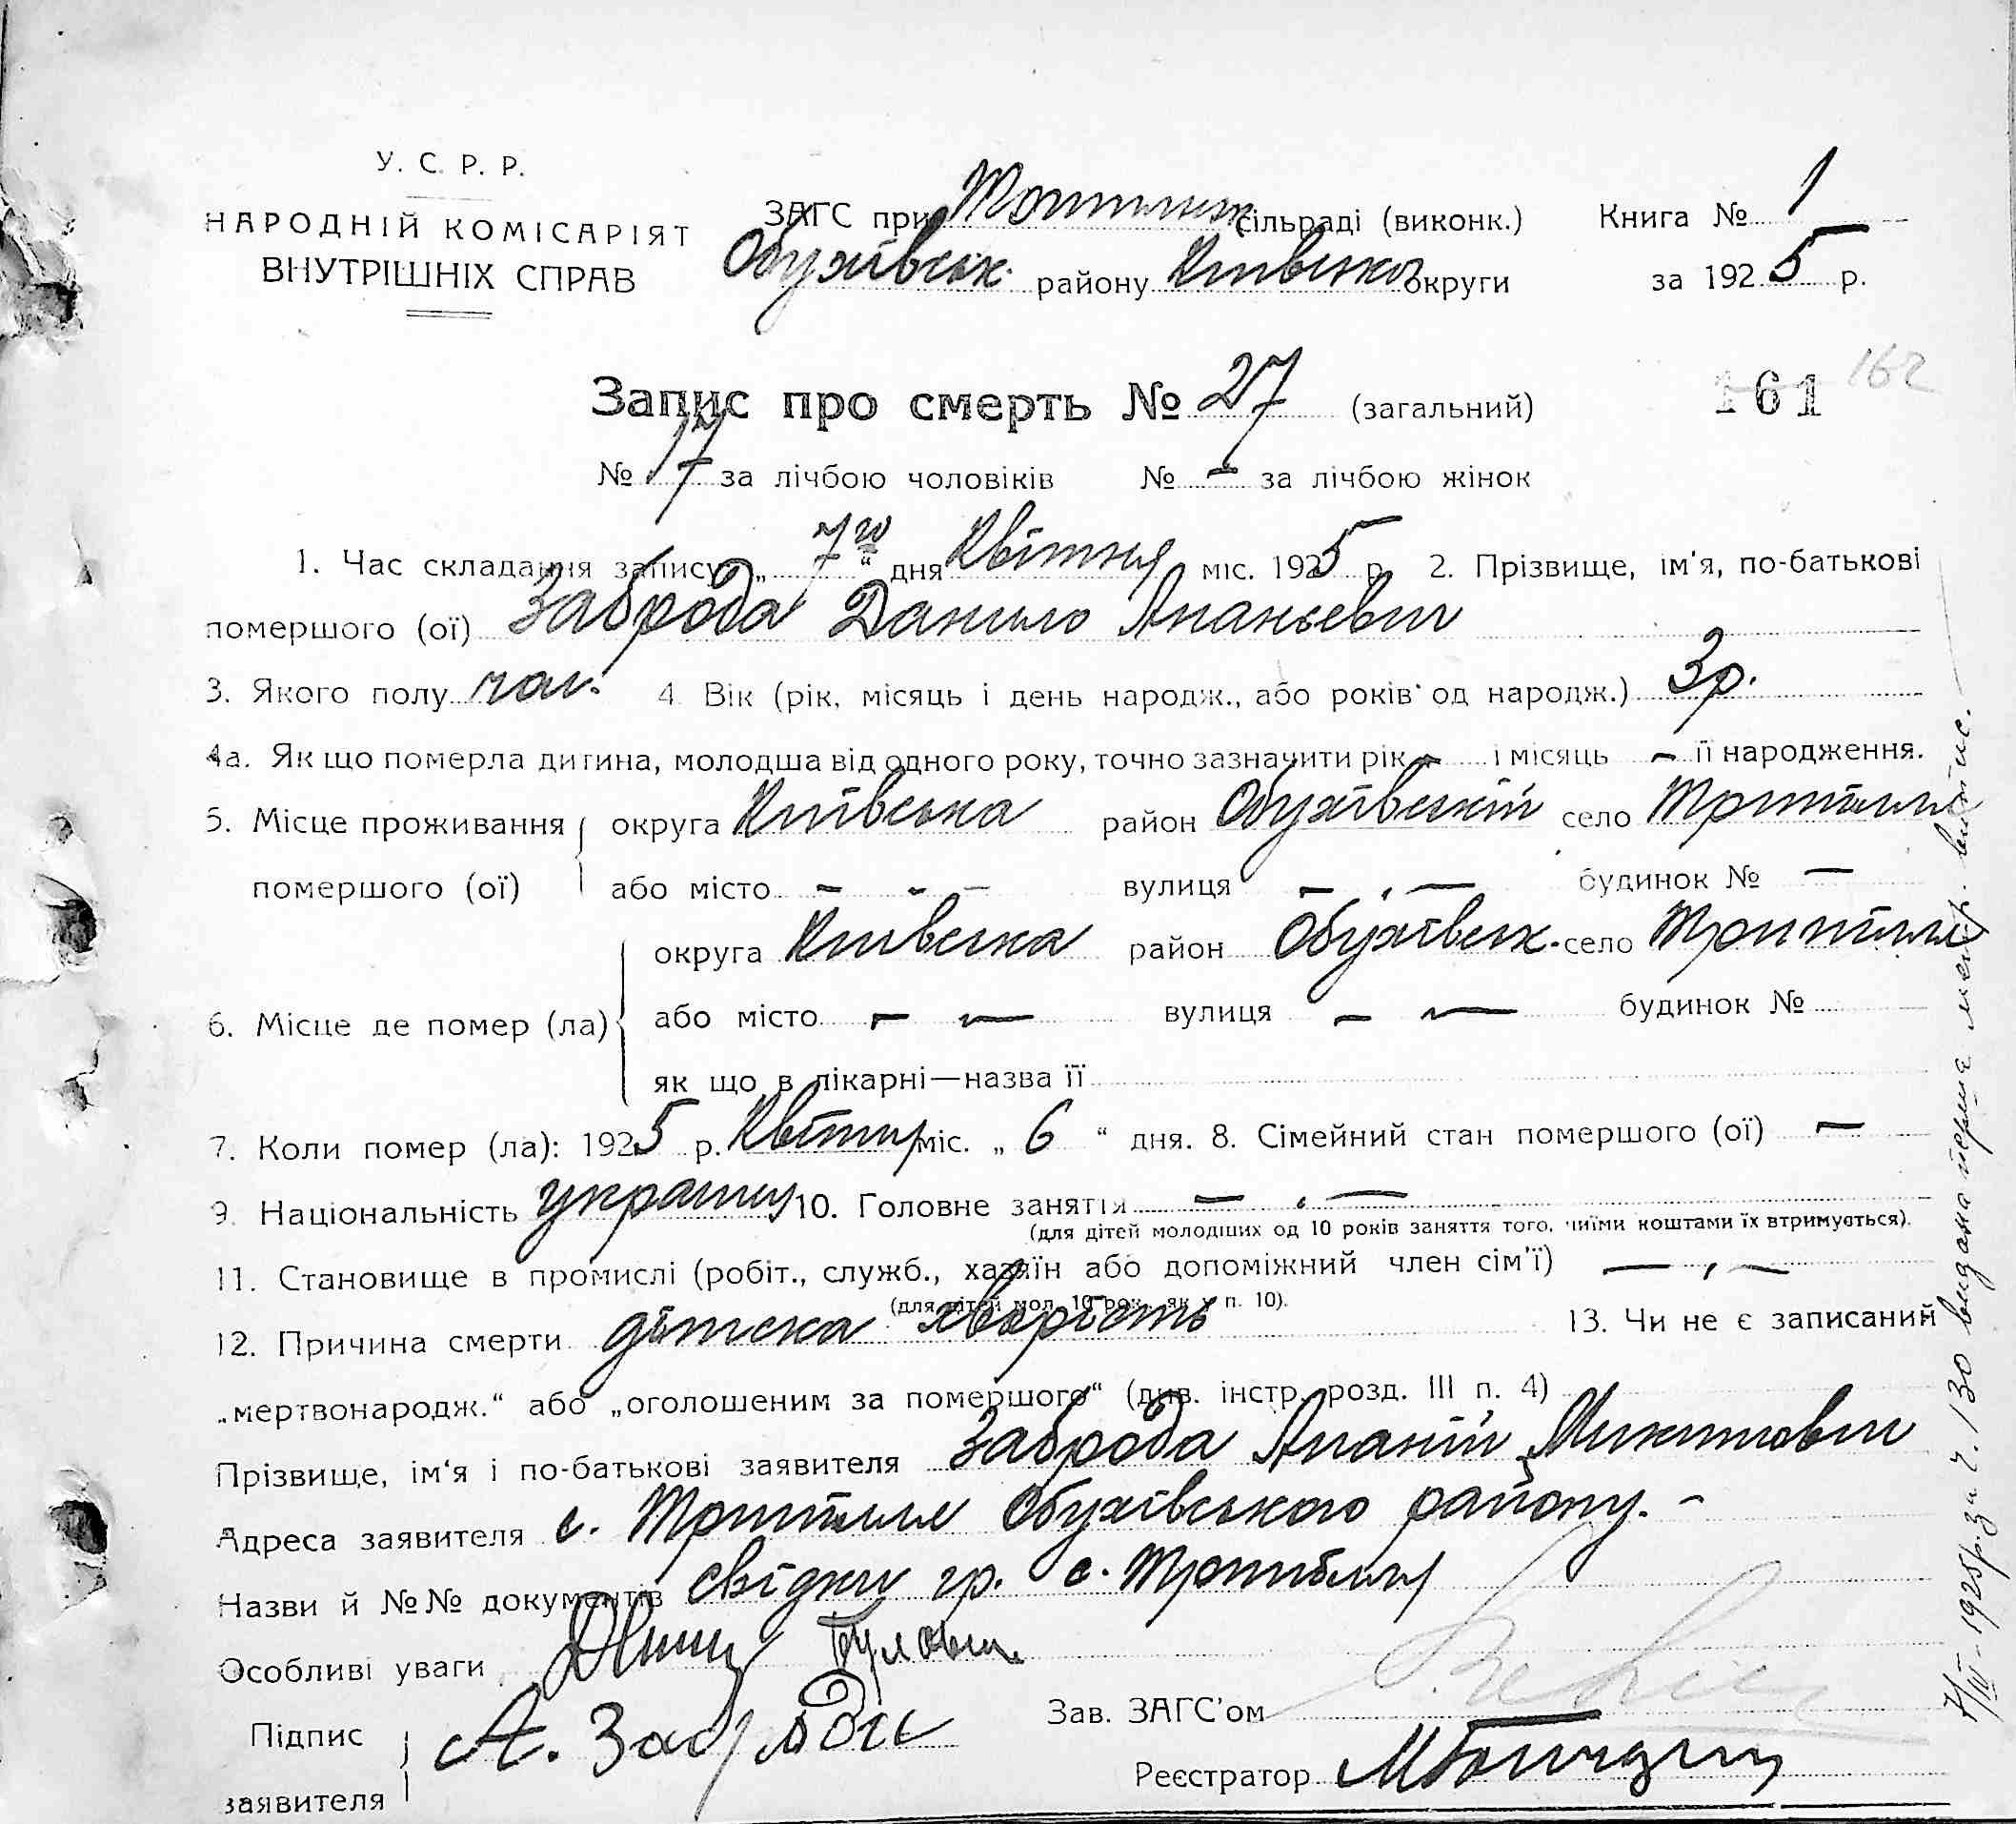 У. С. Р. Р.
НАРОДНІЙ КОМІСАРІЯТ
ВНУТРІШНІХ СПРАВ
ЗАГС при сільраді (виконк.)
Обухівськ. району Київсько округи
Книга № 1
за 1925 р.
Запис про смерть № 27 (загальний)
161 162
№ 17 за лічбою чоловіків № – за лічбою жінок
1. Час складання запису „ 7го “ дня Квітня міс. 1925 р. 2. Прізвище, ім'я, по-батькові
помершого (ої) Заброда Данило Ананьевич
3. Якого полу чол. 4. Вік (рік, місяць і день народж., або років од народж.) 3р.
4а. Як що померла дитина, молодша від одного року, точно зазначити рік – і місяць – її народження.
5. Місце проживання округа Київська район Обухівський село Трипілля
помершого (ої) або місто – - – вулиця – . — будинок № —
округа Київська район Обухівськ. село Трипілля
6. Місце де помер (ла) або місто – — вулиця – — будинок №
як що в лікарні—назва її
7. Коли помер (ла): 1925 р. Квітня міс. „ 6 “ дня. 8. Сімейний стан помершого (ої) —
9. Національність украинец 10. Головне заняття — . —
(для дітей молодших од 10 років заняття того, чиїми коштами їх втримується).
11. Становище в промислі (робіт., служб., хазяїн або допоміжний член сім'ї) — , —
(для дітей мол. 10 рок. як у п. 10).
12. Причина смерти дітска хворість 13. Чи не є записаний
„мертвонародж.“ або „оголошеним за помершого“ (див. інстр. розд. III п. 4)
Прізвище, ім'я і по-батькові заявителя Заброда Ананій Микитович
Адреса заявителя с. Трипілля Обухівського району. –
Назви й №№ документів свідки гр. с. Трипілля
Особливі уваги
Підпис
заявителя
А. Заброда
Зав. ЗАГС'ом
Реєстратор
7/IV-1925р. за ч. 130 видана перша метр. випис.